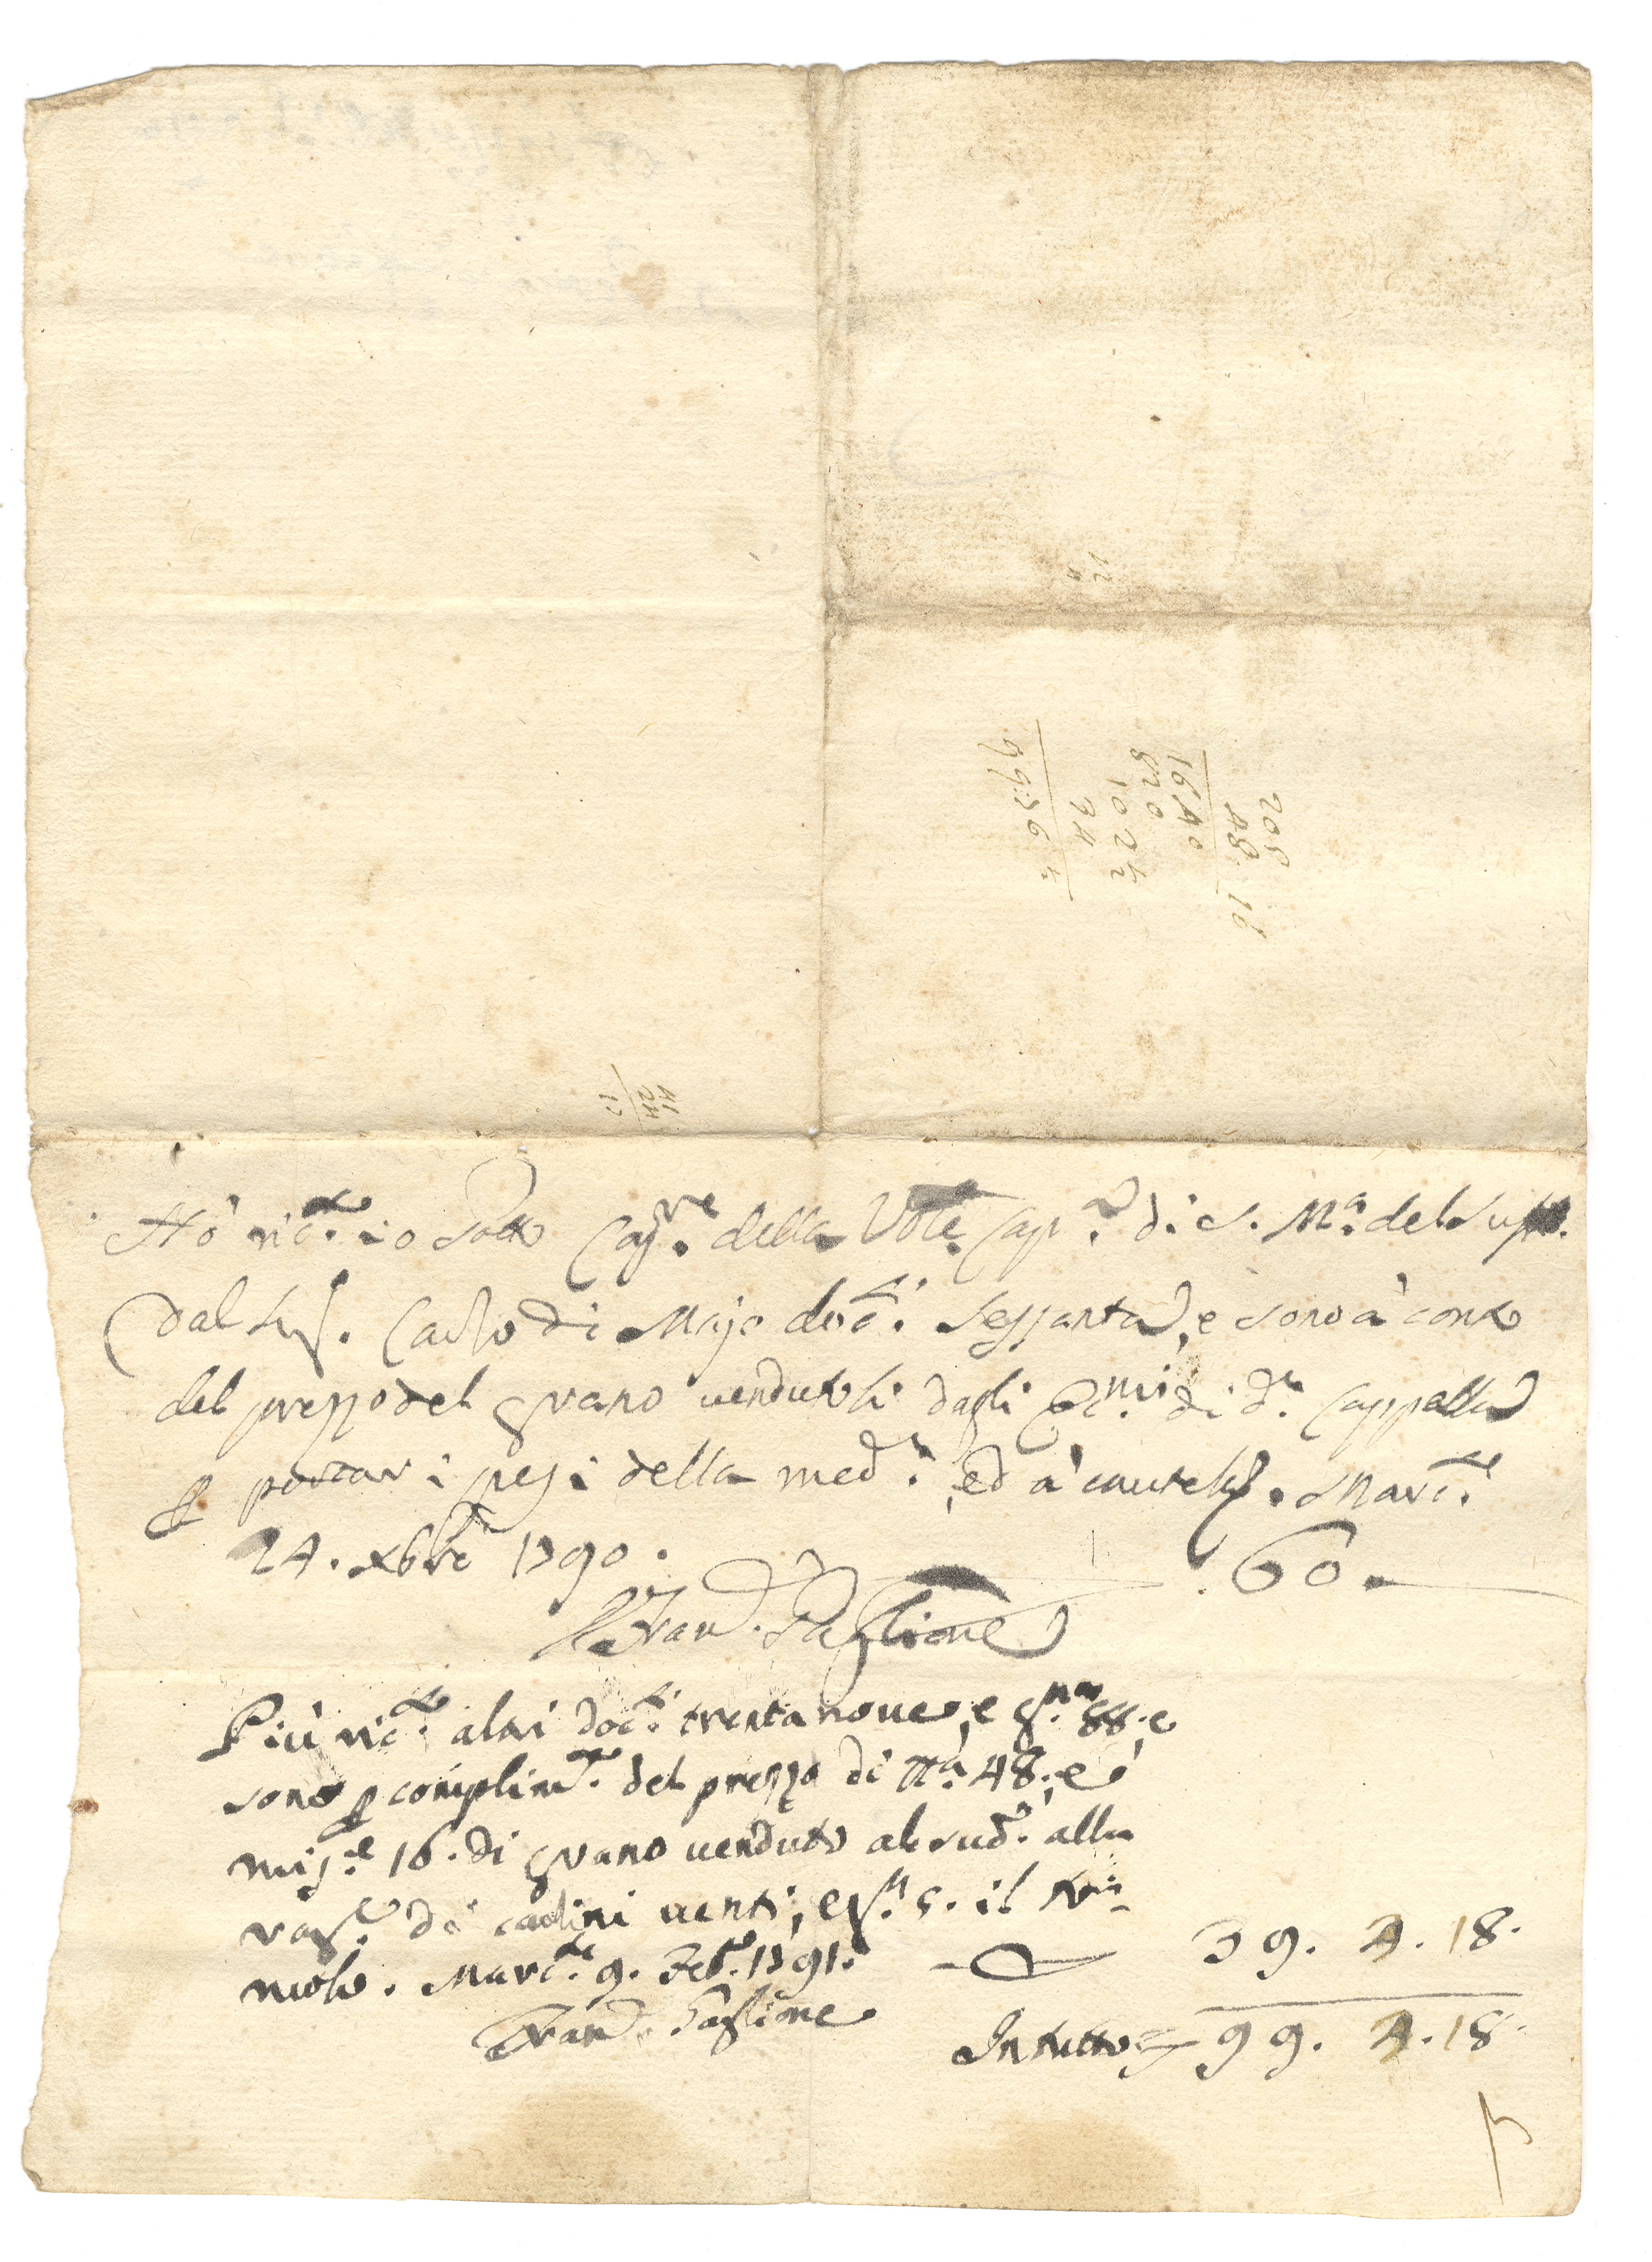 12
4
205
48. 16
1640
820
102 ½
34
99:56 ½
41
24
17
Hò ric.to io sotto Cas.re della Ven.le Capp.a di S. M.a del Suff.
dal Sig. Carlo di Majo doc.ti sessanta, e sono à conto
del prezzo del grano vendutoli dagli Ec.mi di d.a Cappella
p portar i pesi della med.a, ed à cautela. Marc.se
24. Xbre 1790. 60.
Fran.co Paglione
Più ric.to altri doc.ti trenta nove, e g.na 88. e
sono p complim.to del prezzo di tt.a 48. e
mis.e 16. di grano venduto al sud.o alla
rag.e di carlini venti, e g.a 5. il to-
molo. Marc.se 9. Feb.o 1791. 39. 4. 18.
Fran.co Paglione
In tutto 99. 4. 18.